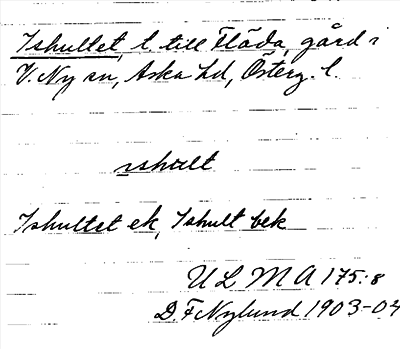 Ishultet, t. till Fläda, gård i
V. Ny sn, Aska hd, Österg. l.
ishult
Ishultet ek, Ishult bek
ULMA 175:8
D. F Nylund 1903-04